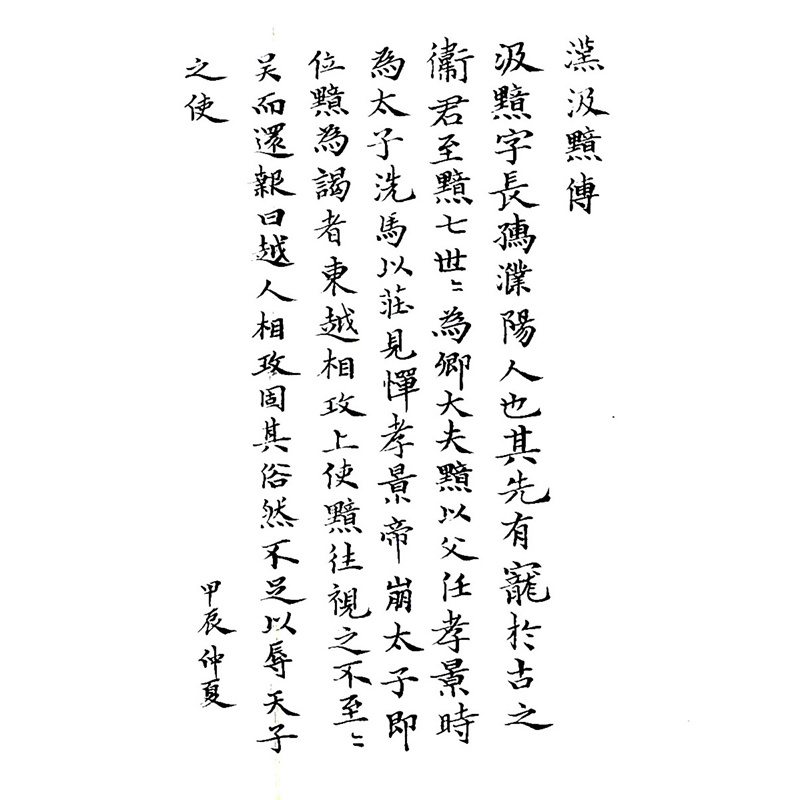 漢汲黯傳
汲黯字長孺濮陽人也其先有寵於古之
衛君至黯七世〻為卿大夫黯以父任孝景時
為太子洗馬以莊見憚孝景帝崩太子即
位黯為謁者東越相攻上使黯往視之不至〻
吳而還報曰越人相攻固其俗然不足以辱天子
之使
甲辰仲夏